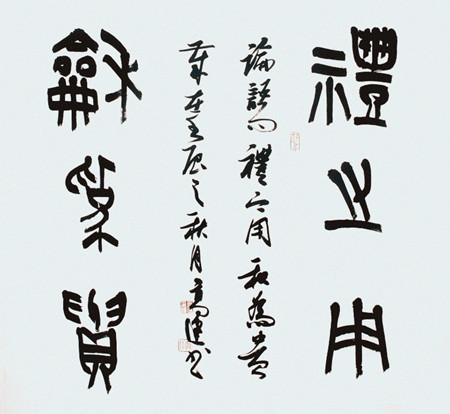 禮之用
龢為貴
論語句禮之用和為貴
歲在壬辰之秋月高建书